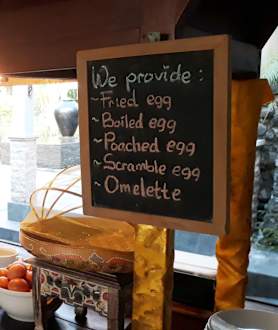 We provide :
~ Fried egg
~ Boiled egg
~ Poached egg
~ Scramble egg
~ Omelette